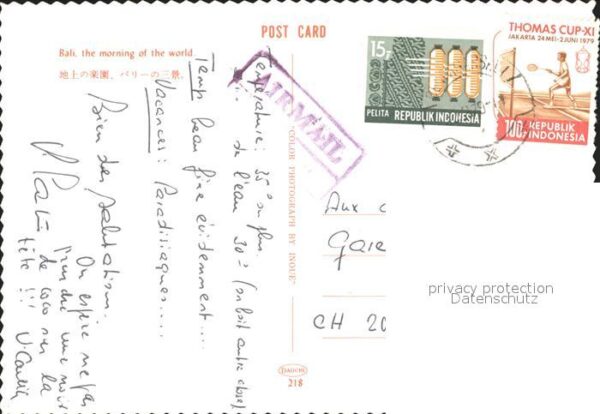 POST CARD
Bali, the morning of the world.
地上の楽園、バリーの三景。
Température: 35° ou plus
de l'eau 30° (on boit autre chose)
Temps beau fixe évidemment....
Vacances: Paradisiaques.....
Bien des salutations.
On espère ne pas
prendre une noix
de coco sur la
tête !!!
AIRMAIL
COLOR PHOTOGRAPH BY INOUE
DAUCHI
218
15r
PELITA
REPUBLIK INDONESIA
THOMAS CUP-XI
JAKARTA 24 MEI-2 JUNI 1979
100r
REPUBLIK
INDONESIA
Aux
Gara
CH 20
privacy protection
Datenschutz